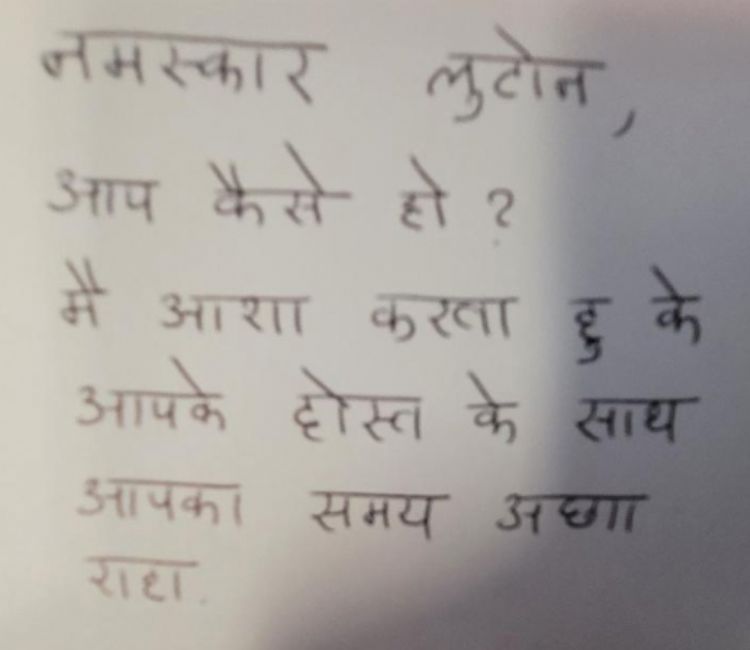 नमस्कार लुटोन,
आप कैसे हो ?
मै आशा करता हु के
आपके दोस्त के साथ
आपका समय अच्छा
राहा.